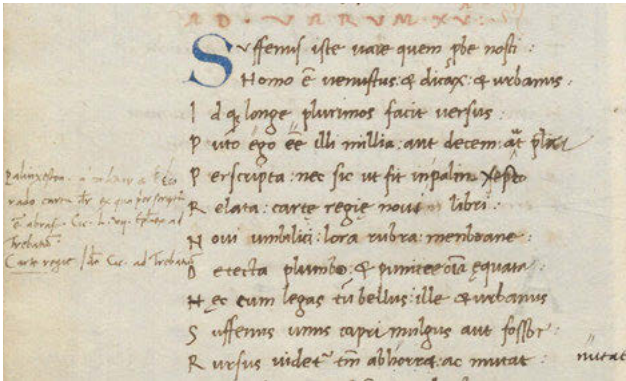 AD · VARUM XV :
Suffenus iste uare quem ꝓbe nosti :
Homo ē uenustus : & dicax : & urbanus .
Idq longe plurimos facit uersus :
Puto ego eē illi millia : aut decem : aut plura
Perscripta : nec sic ut fit in palinxesto
Relata : carte regie noui libri :
Noui umbilici : lora rubra : menbrane
Detecta plumbo : & pumice oīa ęquata :
Hęc cum legas tū bellus : ille & urbanus
Suffenus unus caprimulgus aut fossor :
Rursus uidet tm̄ abhorret : ac mutat :
mutat
Palinxeston
rado carta
abrasa Cic. ad
Trebatiū
Carte regie Cic. ad Trebatiū